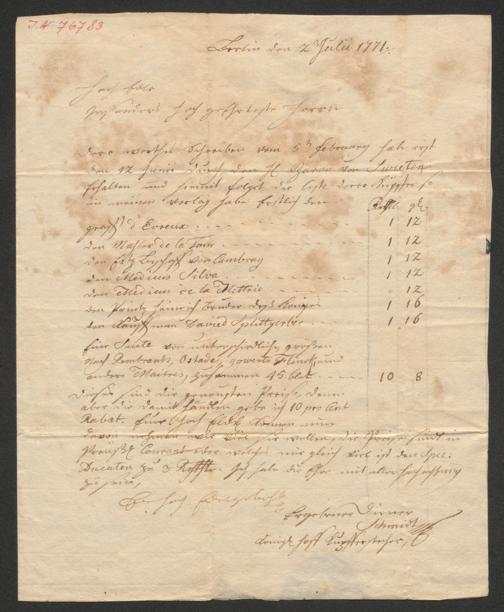 I.N. 76783
Berlin den 2 Julii 1771.
Hoch Edle
Insonders hoch geEhrteste Herrn
Dero werthes Schreiben vom 5t february habe erst
den 12 Junii durch den H Baron von Swieten
Erhalten und hiemit folgt die liste derer Kupffer so
in meinen verlag habe Erstlich den
Rthlr. gr.
graff d'Evreux 1 12
den Mahler de la Tour 1 12
den Ertz Bischoff von Cambray 1 12
den Medicus Silva 1 12
den Medicus de la Mettrie . 12
den Printz Heinrich Bruder des Königs 1 16
den Kauffman David Splittgerber 1 16
Eine Suite von unterschiedlichen großen
nach Rembrant, Ostade, Flinck, und
andere Maitres, zusammen 45 blat 10 8
Dieses sind die genausten Preise, denen
aber die damit handlen gebe ich 10 pro Cent
Rabat. Euer Hoch Edl. können nun
davon nehmen wie viel sie wollen, die Preise sind in
Preuss. Courant oder welches mir gleich viel ist den Spec.
Ducaten zu 3 Rthlr. Ich habe die Ehre mit aller hochachtung
zu seyn,
Ergebener Diener
Schmidt
Königl. hoff Kupfferstecher